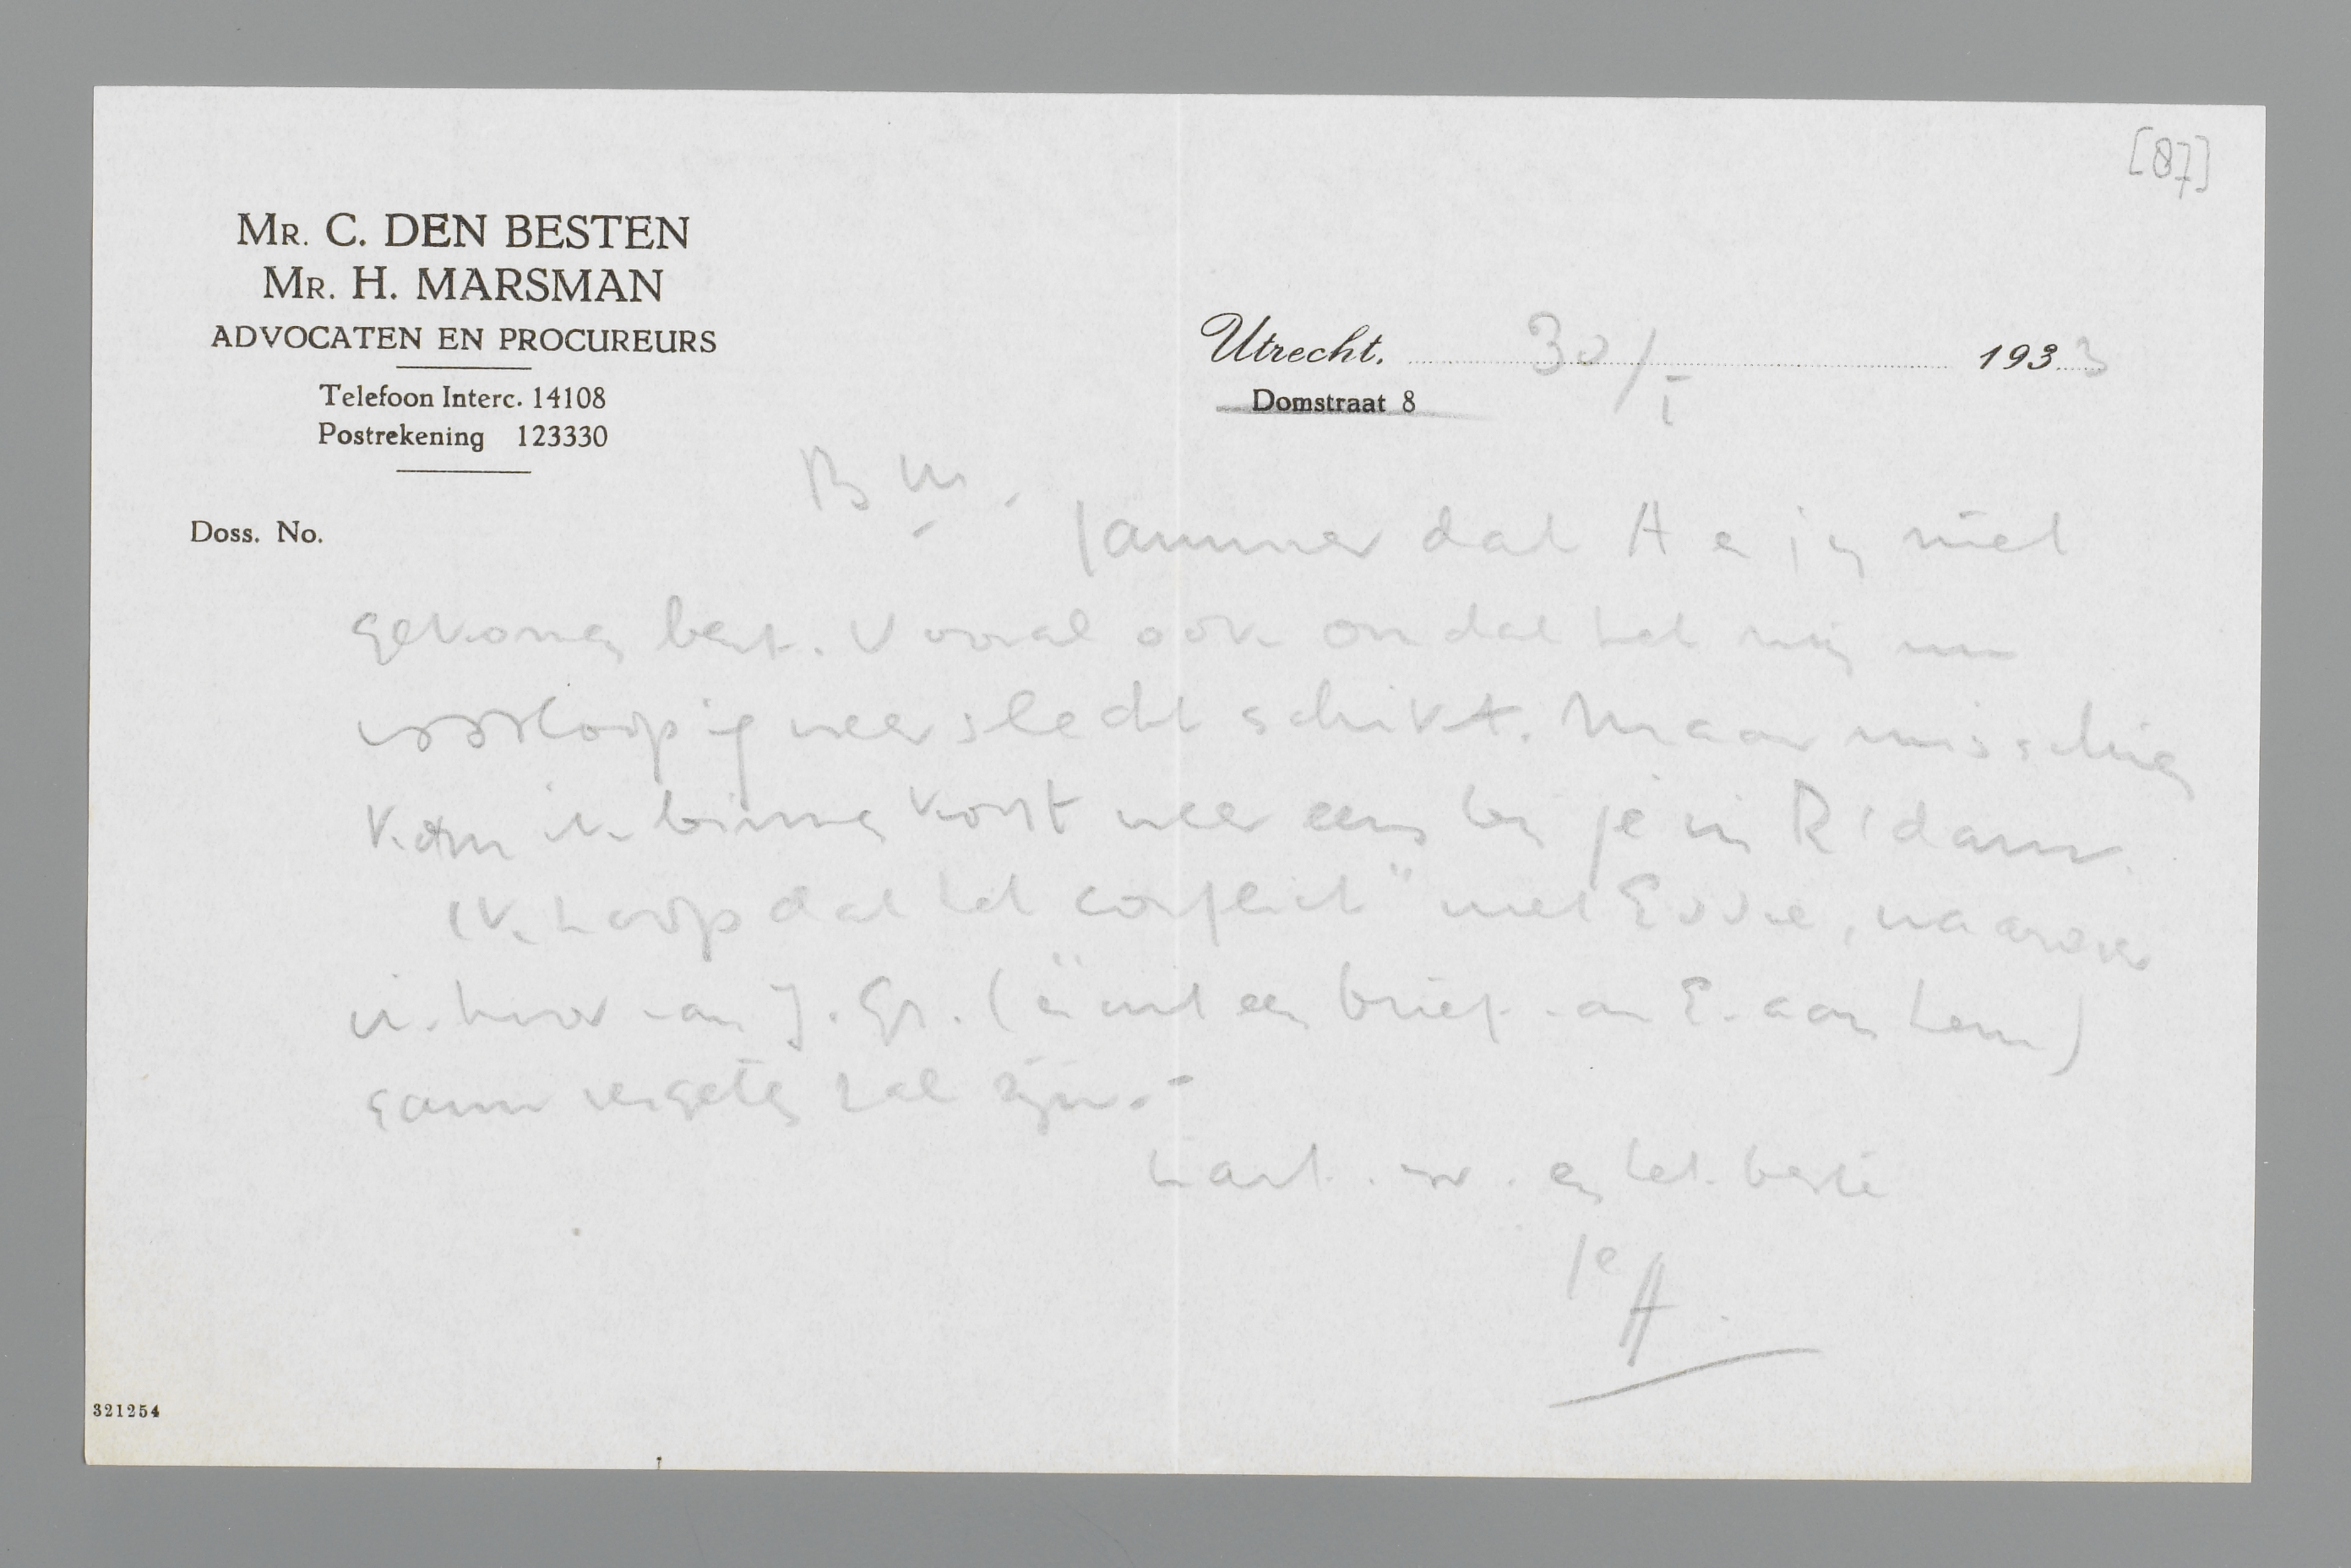 [87]
MR. C. DEN BESTEN
MR. H. MARSMAN
ADVOCATEN EN PROCUREURS
Telefoon Interc. 14108
Postrekening 123330
Utrecht. 30/I 1933
Domstraat 8
Doss. No.
B M.
Jammer dat je niet
gekomen bent. Vooral ook omdat het mij nu
voorloopig weer slecht schikt. Maar misschien
kom ik binnenkort weer eens bij je in R'dam.
Ik hoop dat het conflict" met Eddie, waarover
ik hoor van J. Gr. (en uit een brief van E. aan hem)
gauw vergeten zal zijn.-
Hart. gr. en het beste
je H.
321254